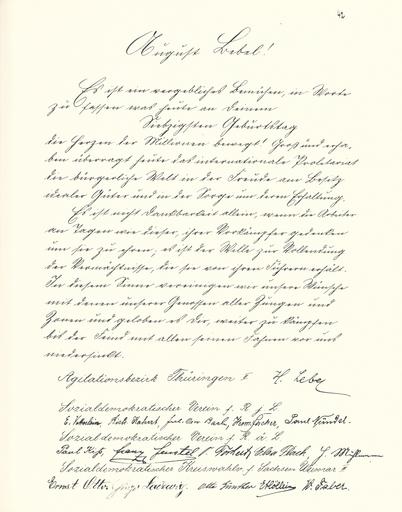 42
August Bebel!
Es ist ein vergebliches Bemühen, in Worte
zu fassen was heute an Deinem
Siebzigsten Geburtstag
die Herzen der Millionen bewegt! Groß und erha-
ben überragt heute das internationale Proletariat
die bürgerliche Welt in der Freude am Besitz
idealer Güter und in der Sorge um deren Erhaltung.
Es ist nicht Dankbarkeit allein, wenn die Arbeiter
an Tagen wie dieser, ihrer Vorkämpfer gedenken
um sie zu ehren, es ist der Wille zur Vollendung
der Vermächtnisse, die sie von ihren Führern erhält.
In diesem Sinne vereinigen wir unsere Wünsche
mit denen unserer Genossen aller Zungen und
Zonen und geloben es Dir, weiter zu kämpfen
bis der Feind mit allen seinen Fahnen vor uns
niedersinkt.
Agitationsbezirk Thüringen I H. Leber
Sozialdemokratischer Verein f. R. j. L.
Paul
Sozialdemokratischer Verein f. R. ä. L.
Paul Franz Otto
Sozialdemokratischer Kreiswahlver. f. Sachsen Weimar I
Ernst Otto W. Faber.